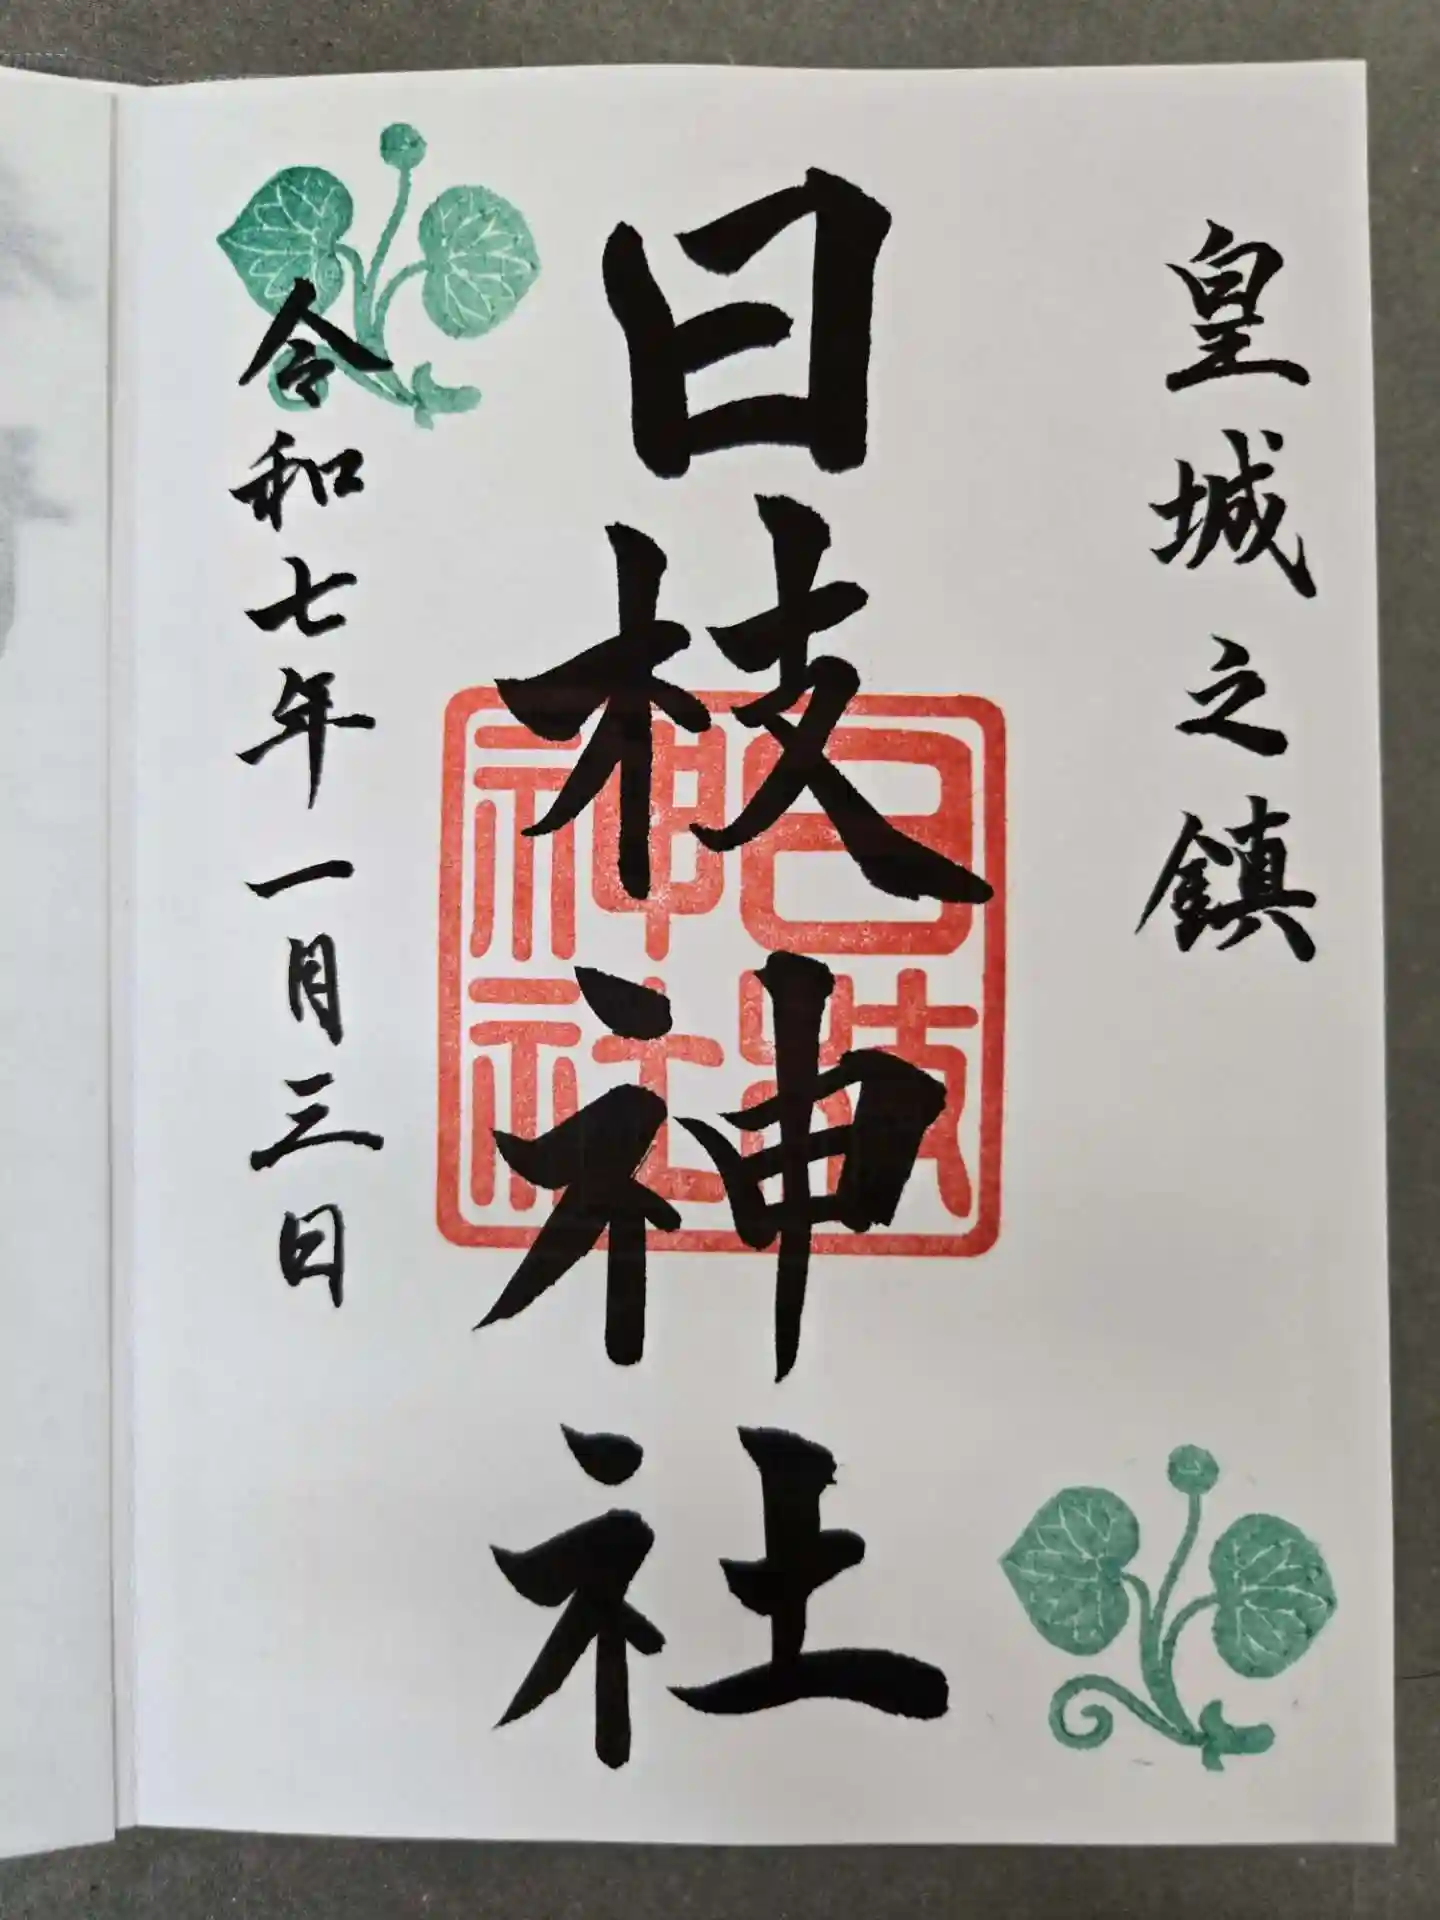 皇城之鎮
日枝神社
日枝神社
令和七年一月三日